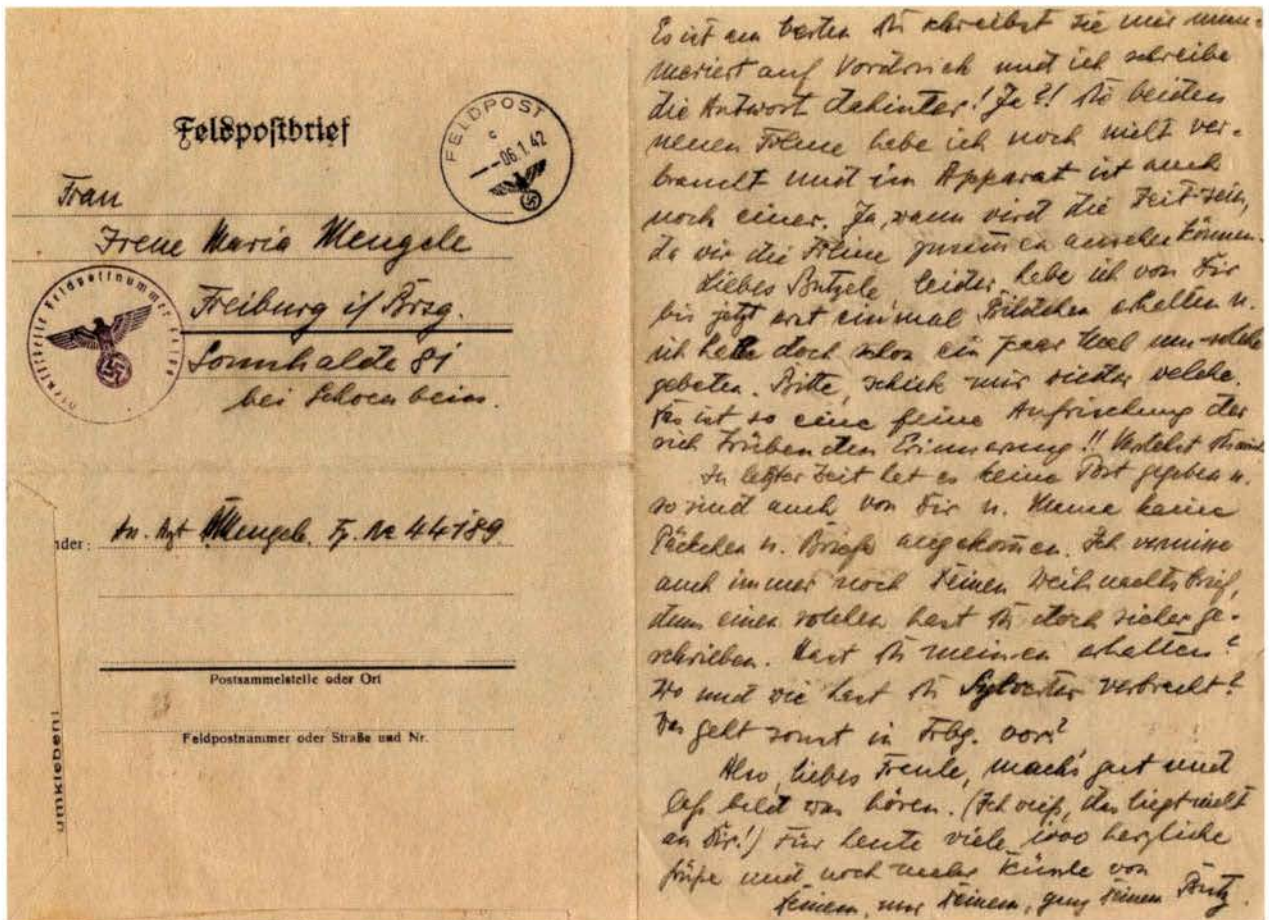 Feldpostbrief
FELDPOST
c
--06.1.42
Frau
Irene Maria Mengele
Freiburg i/Brsg.
Sonnhalde 81
bei
nder: Mengele. Fp. No 44189
Postsammelstelle oder Ort
Feldpostnummer oder Straße und Nr.
umkleben!
Es ist am besten Du schreibst sie mir num-
meriert auf Vordruck und ich schreibe
die Antwort dahinter! Ja?! Die beiden
neuen Filme habe ich noch nicht ver-
braucht und im Apparat ist auch
noch einer. Ja, wann wird die Zeit sein,
da wir die Filme zusammen ansehen können.
Liebes Butzele, leider habe ich von Dir
bis jetzt erst einmal Bildchen erhalten u.
ich habe doch schon ein paar Mal um solche
gebeten. Bitte, schick mir wieder welche.
Es ist so eine feine Auffrischung der
sich trübenden Erinnerung!! Verstehst Du mich
In letzter Zeit hat es keine Post gegeben u.
so sind auch von Dir u. Mama keine
Päckchen u. Briefe angekommen. Ich vermisse
auch immer noch Deinen Weihnachtsbrief,
denn einen solchen hast Du doch sicher ge-
schrieben. Hast Du meinen erhalten?
Wo und wie hast Du Sylvester verbracht?
Was geht sonst in Frbg. vor?
Also, liebes Irenle, mach's gut und
laß bald was hören. (Ich weiß, das liegt nicht
an Dir!) Für heute viele 1000 herzliche
Grüße und noch mehr Küssle von
Deinem, nur Deinem, ganz Deinem Butz.